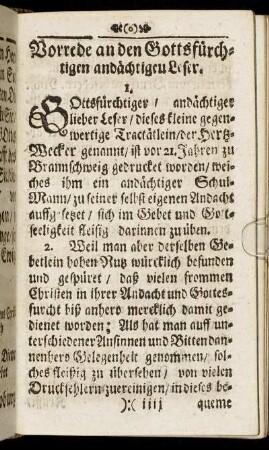 (o)
Vorrede an den Gottsfürch-
tigen andächtigeu Leser.
1.
GOttsfürchtiger / andächtiger
lieber Leser / dieses kleine gegen-
wertige Tractätlein / der Hertz-
Wecker genannt / ist vor 21. Jahren zu
Brannschweig gedrucket worden / wel-
ches ihm ein andächtiger Schul-
Mann / zu seiner selbst eigenen Andacht
auffgesetzet / sich im Gebet und Gott-
seeligkeit fleisig darinnen zu üben.
2. Weil man aber derselben Ge-
betlein hohen Nutz würcklich befunden
und gespüret / daß vielen frommen
Christen in ihrer Andacht und Gottes-
furcht biß anhero mercklich damit ge-
dienet worden; Als hat man auff un-
terschiedener Ansinnen und Bitten dan-
nenhero Gelegenheit genommen / sol-
ches fleißig zu übersehen / von vielen
Druckfehlern zuereinigen / in dieses be-
):( iiij queme